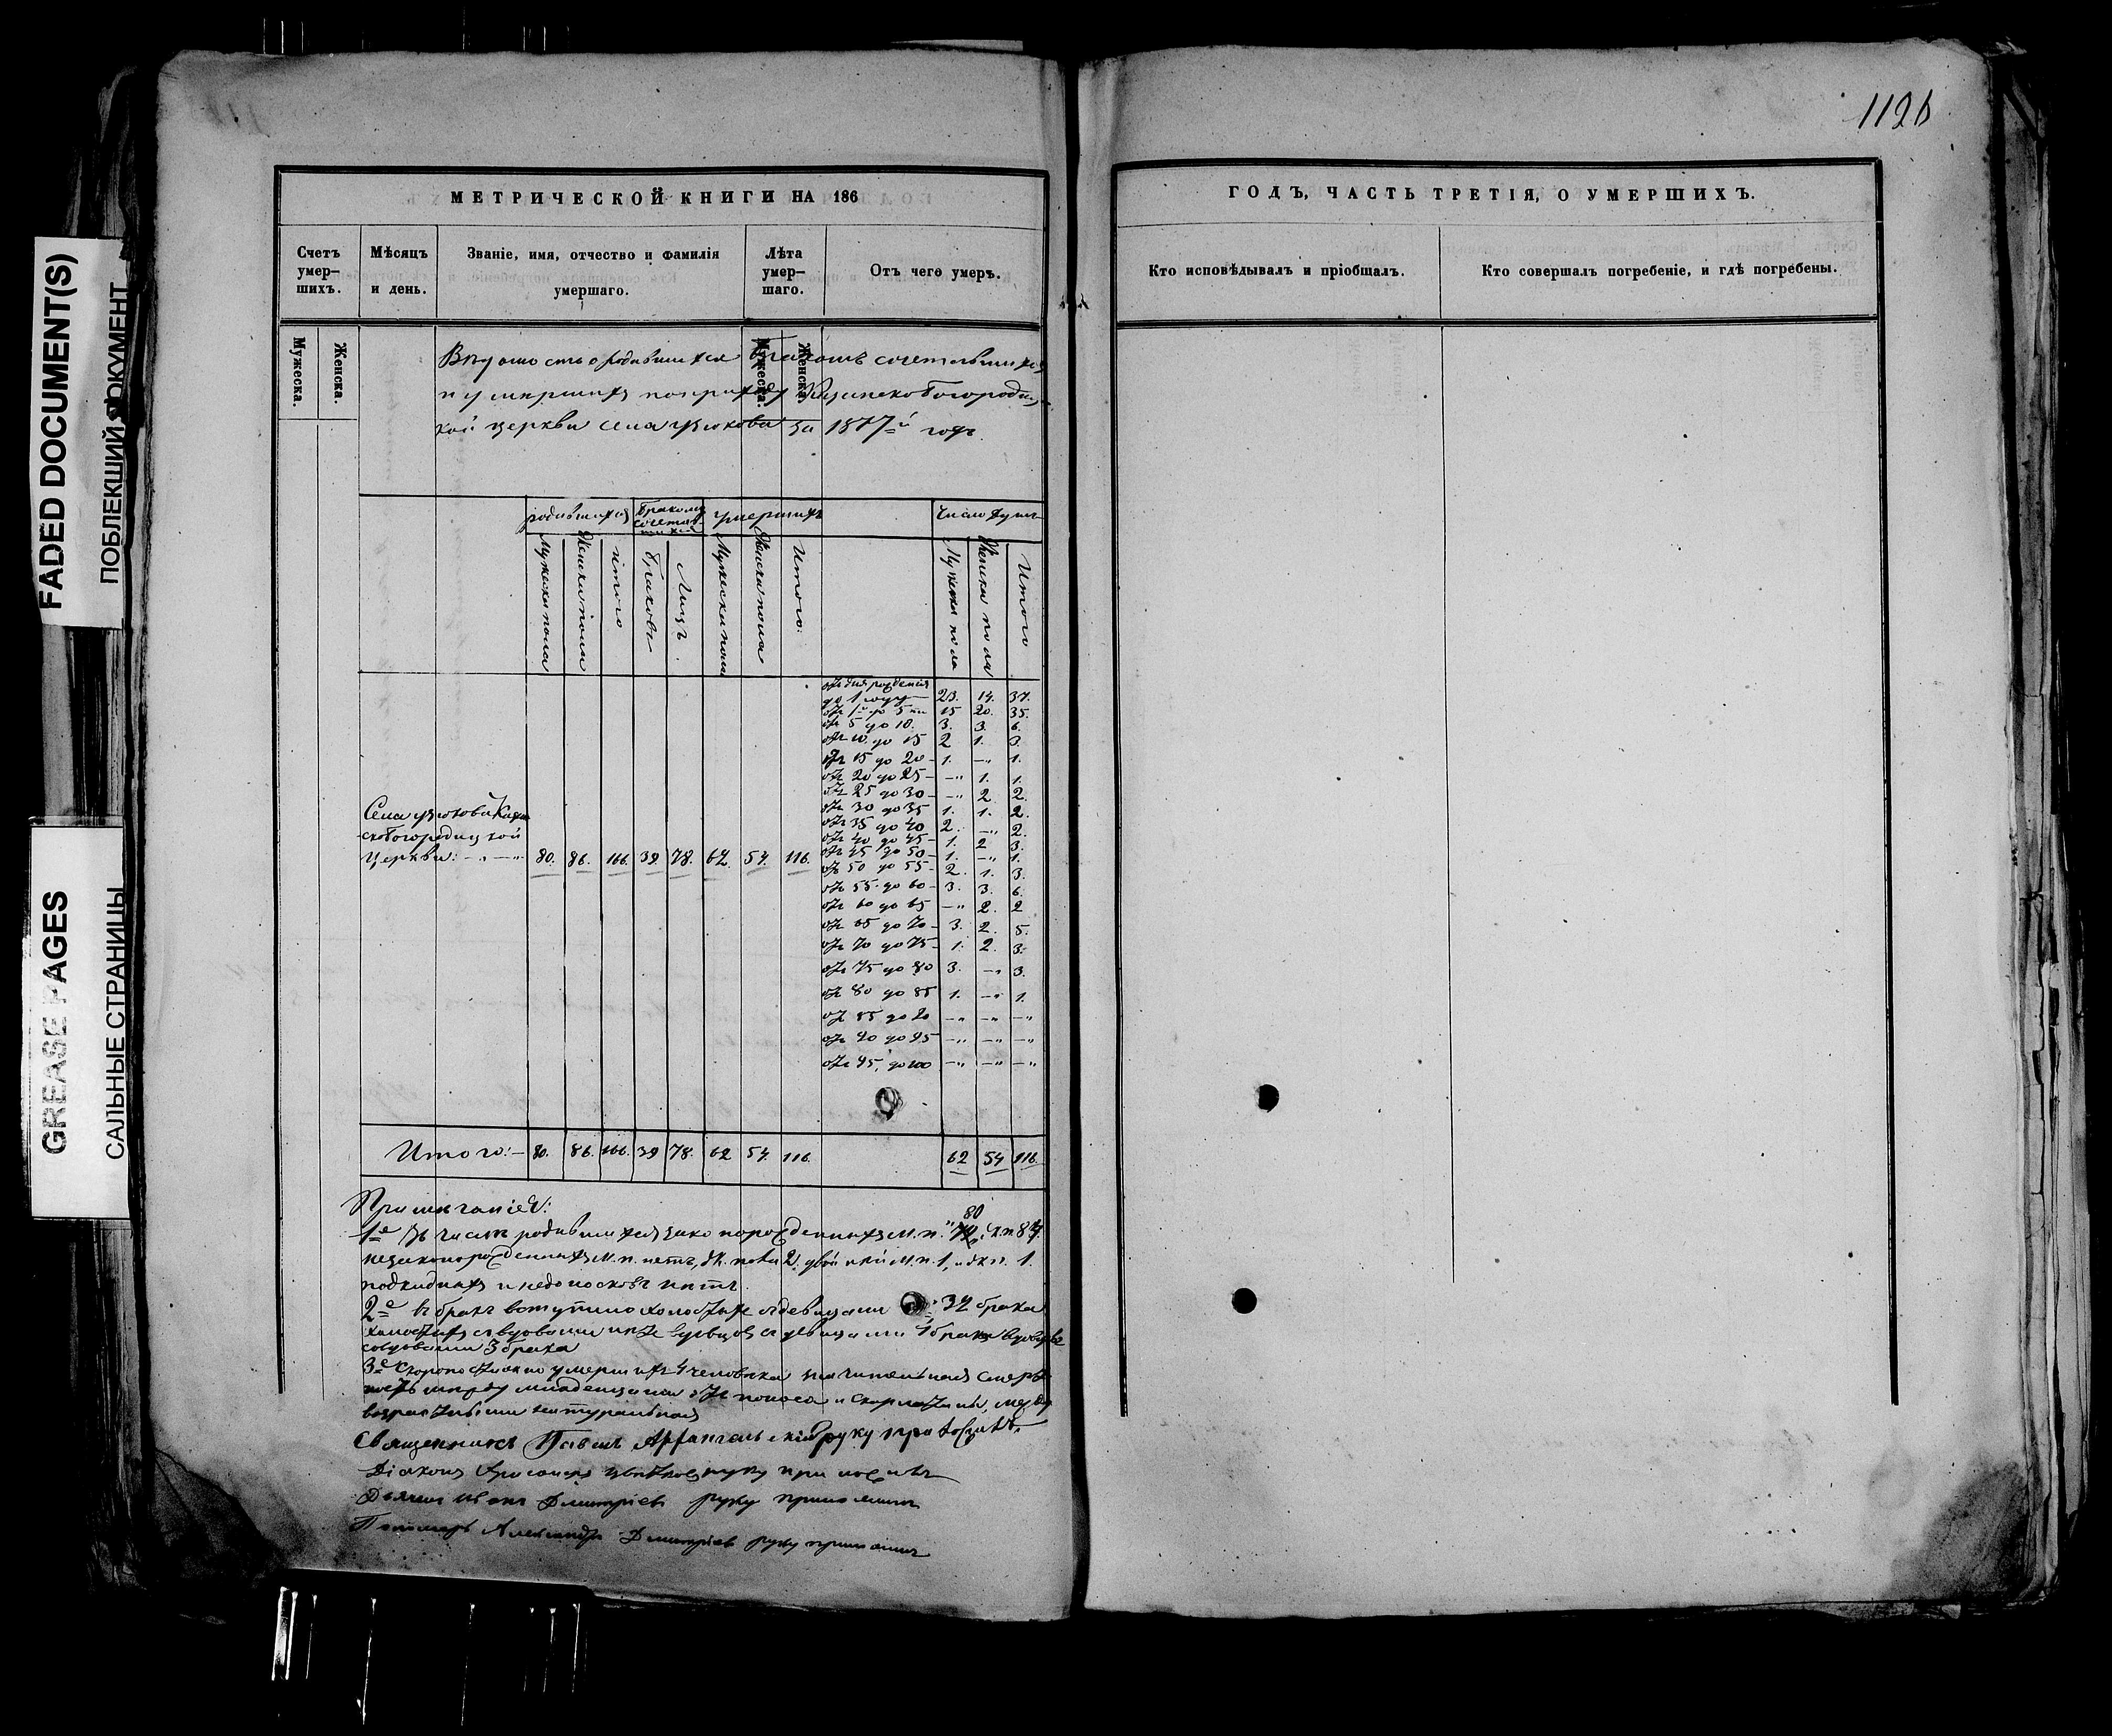 1126
FADED DOCUMENT(S)
ПОБЛЕКШИЙ ДОКУМЕНТ
GREASE PAGES
САЛЬНЫЕ СТРАНИЦЫ
МЕТРИЧЕСКОЙ КНИГИ НА 186
Счетъ умер-шихъ.
Мѣсяцъ и день.
Званіе, имя, отчество и фамилія умершаго.
Лѣта умер-шаго.
Отъ чего умеръ.
Мужеска.
Женска.
Мужеска.
Женска.
ГОДЪ, ЧАСТЬ ТРЕТІЯ, О УМЕРШИХЪ.
Кто исповѣдывалъ и пріобщалъ.
Кто совершалъ погребеніе, и гдѣ погребены.
Вѣдомость о родившихся бракомъ сочетавшихся
и умершихъ по приходу Казанскобогородиц-
кой церкви села Узюкова за 1877й годъ.
родившихся
бракомъ сочетав-шихся
умершихъ
Число душъ
Мужеска пола
Женска пола
Итого
Браковъ
Лицъ.
Мужеска пола
Женска пола
Итого:
Мужеска пола
Женска пола
Итого
отъ дня рожденія
до 1 году 23. 14. 37.
отъ 1го до 5ти 15 20. 35.
отъ 5 до 10. 3. 3. 6.
отъ 10. до 15 2 1. 3.
отъ 15 до 20 - 1. -„ 1.
отъ 20 до 25 - -„ 1. 1.
отъ 25 до 30 - -„ 2. 2.
отъ 30 до 35 1. 1. 2.
отъ 35 до 40 2. -„ 2.
отъ 40 до 45 - 1. 2 3.
отъ 45 до 50 - 1. -„ 1.
отъ 50 до 55 - 2. 1. 3.
отъ 55 до 60 - 3. 3. 6.
отъ 60 до 65 -„ 2. 2
отъ 65 до 70 - 3. 2. 5.
отъ 70 до 75 - 1. 2. 3.
отъ 75 до 80 3. -„ 3.
отъ 80 до 85 1. -„ 1.
отъ 85 до 90 -„ -„ -„
отъ 90 до 95 -„ -„ -„
отъ 95 до 100 -„ -„ -„
Села Узюкова Казан-
скобогородицкой
Церкви: -„-„ 80. 86. 166. 39 78. 62. 54. 116.
Итого:- 80. 86. 166. 39 78. 62 54. 116. 62 54 116.
Примѣчаніе:
80
1е Въ числѣ родившихся законорожденныхъ м.п. ж.п. 84.
незаконорожденныхъ м.п. нетъ, ж. пола 2. двойни м.п. 1, и ж.п. 1.
подкидныхъ и недоносковъ нетъ.
2е въ бракъ вступило холостыхъ съ девицами 34 брака
холостыхъ съ вдовами вдовцовъ съ девицами 1 бракъ вдовцовъ
со вдовами 3 брака
3е Скоропостижно умершихъ 4 человека значительная смерт-
ность между младенцами отъ поноса и скарлатины, между
возрастными натуральная
Священникъ Павелъ Архангельскій руку приложилъ.
Діаконъ Цвѣтковъ руку приложилъ
Дьячокъ Иванъ Дмитріевъ руку приложилъ
Пономарь Александръ Дмитріевъ руку приложилъ